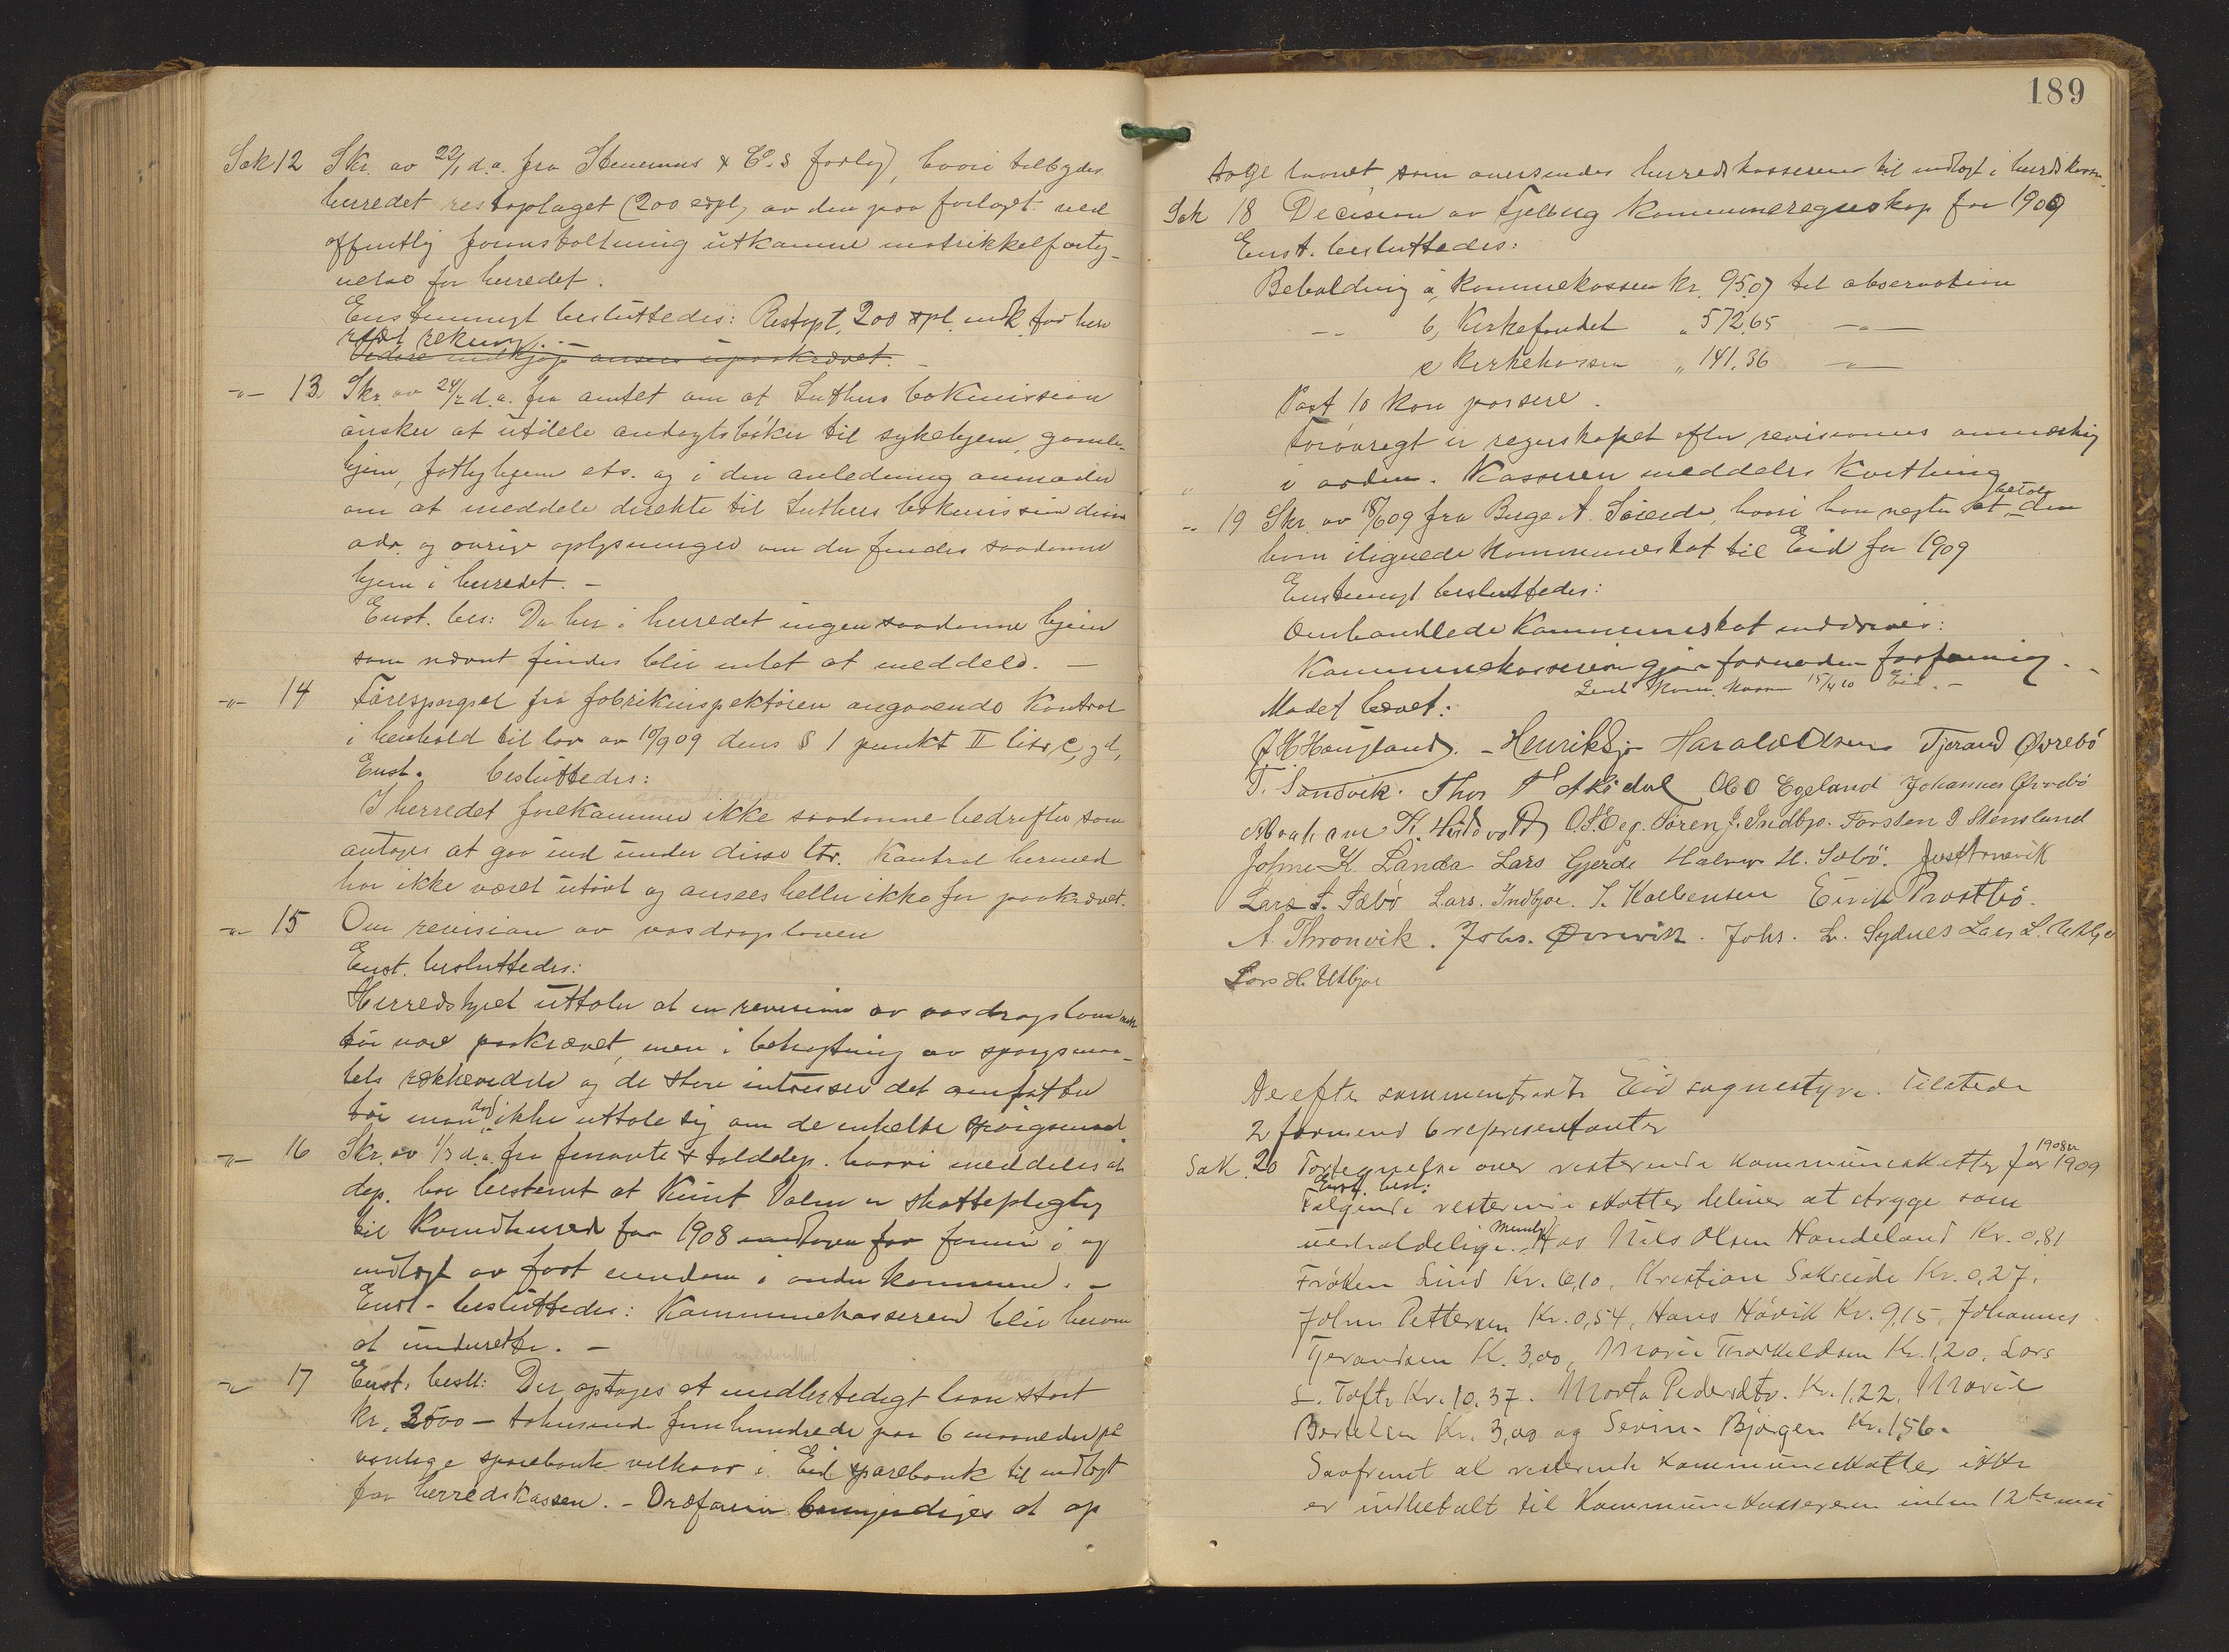 Sak 12 Skr. av 22/1 d.a. fra Stenersens & Co.s forlag, hvori tilbydes
herredet restoplaget (200 expl.) av den paa forlaget ved
offentlig foranstaltning utkomne matrikkelforteg-
nelse for herredet.
Enstemmigt besluttedes: Restopl. 200 expl. indk. for her-
redets rekning. -
Videre indkjøp ansees upaakrævet. -
-"- 13 Skr. av 24/2 d.a. fra amtet om at Luthers bokmission
ønsker at utdele andagtsbøker til sykehjem, gamle-
hjem, fattighjem ets. og i den anledning anmoder
om at meddele direkte til Luthers bokmission disses
adr. og øvrige oplysninger om der findes saadanne
hjem i herredet. -
Enst. bes: Da her i herredet ingen saadanne hjem
som nævnt findes blir intet at meddele. -
-"- 14 Førespørgsel fra fabrikinspektøren angaaende kontrol
i henhold til lov av 10/9 09 dens § 1 punkt II litr. c, og d,
Enst. besluttedes:
I herredet forekommer ikke saadanne bedrifter som
antages at gaa ind under disse ltr. Kontrol hermed
har ikke været utøvt og ansees heller ikke for paakrævet.
-"- 15 Om revision av vasdragsloven
Enst. besluttedes:
Herredstyret uttaler at en revision av vasdragsloven
tør være paakrævet, men i betragtning av spørgsmaa-
lets rækkevidde og de store intresser det omfatter
tør man dog ikke uttale sig om de enkelte spørgsmaal
-"- 16 Skr. av 1/3 d.a. fra finants & tolddep. hvori meddeles at
dep. har bestemt at Knut Valen er skattepligtig
til Kvindherred for 1908 formue i og
indtægt av fast eiendom i anden kommune. -
Enst. besluttedes: Kommunekassereren blir herom
at underrette. -
-"- 17 Enst. besl: Der optages et midlertidigt laan stort
kr. 2500 - totusind femhundrede paa 6 maaneder på
vanlige sparebank vilkaar i Eid sparebank til indtægt
for herredskassen. - Ordføreren bemyndiges at op
189
tage laanet, som oversendes herredskassereren til indtægt i herredskassen.
Sak 18 Decision av Fjelberg kommuneregnskap for 1909
Enst. besluttedes:
Beholdning a, kommekassen kr. 95.07 til observation
-"- b, Kirkefondet " 572,65 -"-
c Kirkekassen " 141,36 -"-
Post 10 kan passere.
Forøvregt er regnskapet efter revisionens anmerkning
i orden. Kassereren meddeles kvittering
-"- 19 Skr. av 18/6 09 fra Birge A. Søreide, hvori han negter at betale den
ham ilignede kommuneskat til Eid for 1909
Enstemmigt besluttedes:
Omhandlede kommuneskat inddrives:
Kommunekassereren gjør fornøden forføining. -
Sendt kom. kassen 15/4 10 Eid. -
Møtet hævet:
J. H. Haugland. - Henrik Harald Olsen Tjerand Øvrebø
T. Sandvik. Thor Ole O Egeland Johannes Øvrebø
K. Søren J. Indbjo. Torsten Stensland
Johne K. Landa Lars Gjerde Halvor H. Sæbö.
Lars S. Sæbø Lars. Indbjoe. S. Kolbensen Eirik Prosttvö.
A. Thronvik. Johs. Johs. L. Sydnes Lars L. Utbjo
Lars H. Utbjoe
Derefter sammentraadte Eid sognestyre. Tilstede
2 formænd 6 representanter
Sak. 20 Fortegnelse over resterende kommuneskatter for 1908 og 1909
Enst. besl:
Følgende resterende skatter bliver at stryge som
uerholdelige. Nemlig Hos Nils Olsen Handeland Kr. 0,81
Frøken Lind Kr. 6,10, Kristian Sakseide Kr. 0,27.
John Pettersen Kr. 0,54, Hans Håvik Kr. 9,15, Johannes
Tjerandsen K. 3,00, Marie Thorkeldsen Kr. 1,20, Lars
S. Tofte Kr. 10.37. Marta Pedersdtr. Kr. 1,22, Marie
Bertelsen Kr. 3,00 og Serine Bjørgen Kr. 1,56.
Saafremt at resterende kommuneskatter ikke
er indbetalt til Kommunekassereren inden 12te mai